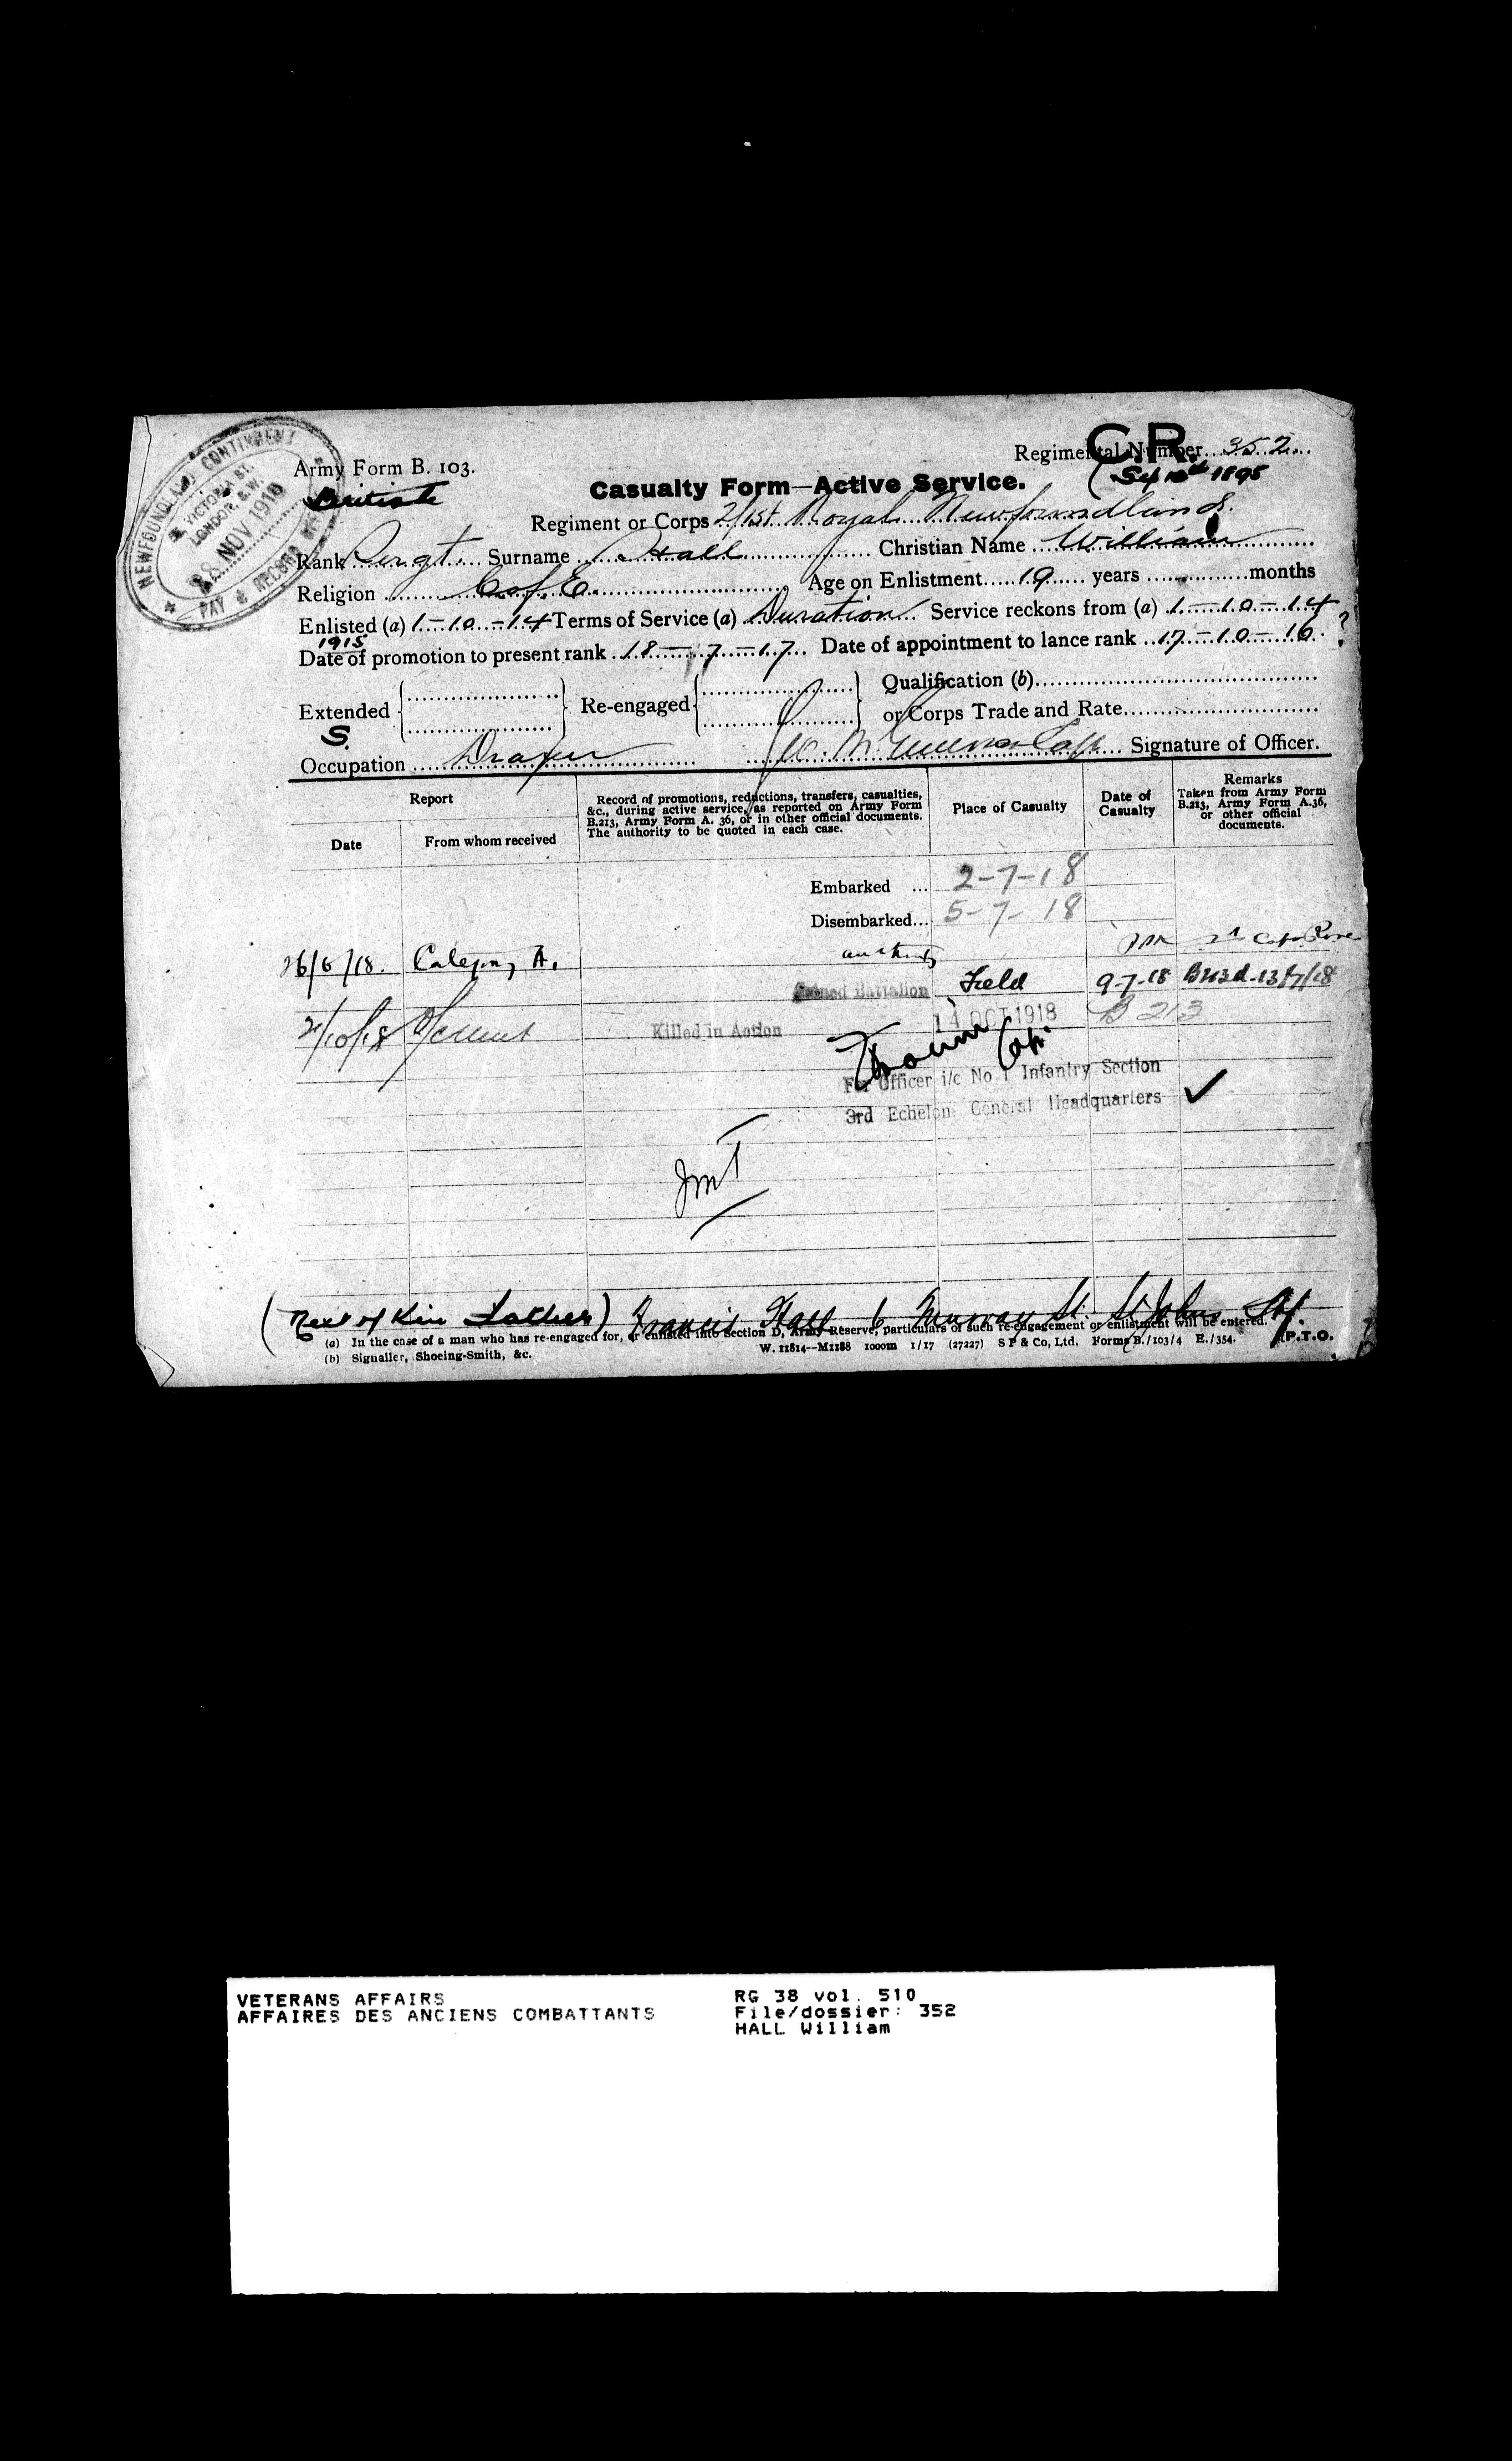 NEWFOUNDLAND CONTINGENT
VICTORIA ST.
LONDON. S.W.
28 NOV 1918
PAY & RECORD
C.R.
Regimental Number 352
Army Form B. 103.
British
Casualty Form—Active Service.
(Sep 1895
Regiment or Corps 2/1st Royal Newfoundland.
Rank Sergt. Surname Hall Christian Name William
Religion C of E. Age on Enlistment 19 years months
Enlisted (a) 1-10-14 Terms of Service (a) Duration Service reckons from (a) 1-10-14
1915
Date of promotion to present rank 18-7-17 Date of appointment to lance rank 17-10-16 ?
Extended Re-engaged Qualification (b)
or Corps Trade and Rate
S.
Occupation Draper Capt Signature of Officer.
Report
Date
From whom received
Record of promotions, reductions, transfers, casualties, &c., during active service, as reported on Army Form B.213, Army Form A. 36, or in other official documents. The authority to be quoted in each case.
Place of Casualty
Date of Casualty
Remarks
Taken from Army Form B.213, Army Form A.36, or other official documents.
Embarked ... 2-7-18
Disembarked... 5-7-18
26/6/18. Category A.
Joined Battalion Field 9-7-18 B213d-13/7/18
21/10/18 Killed in Action 14 OCT 1918 B 213
Capt
For Officer i/c No 1 Infantry Section
3rd Echelon General Headquarters ✓
JMT
(Next of Kin Father) Francis Hall 6 Murray St. St Johns Nfld.
(a) In the case of a man who has re-engaged for, or enlisted into Section D, Army Reserve, particulars of such re-engagement or enlistment will be entered.
(b) Signaller, Shoeing-Smith, &c. W. 11814—M1188 1000m 1/17 (27227) S P & Co, Ltd. Forms B./103/4 E./354. [P.T.O.
VETERANS AFFAIRS RG 38 vol. 510
AFFAIRES DES ANCIENS COMBATTANTS File/dossier: 352
HALL William